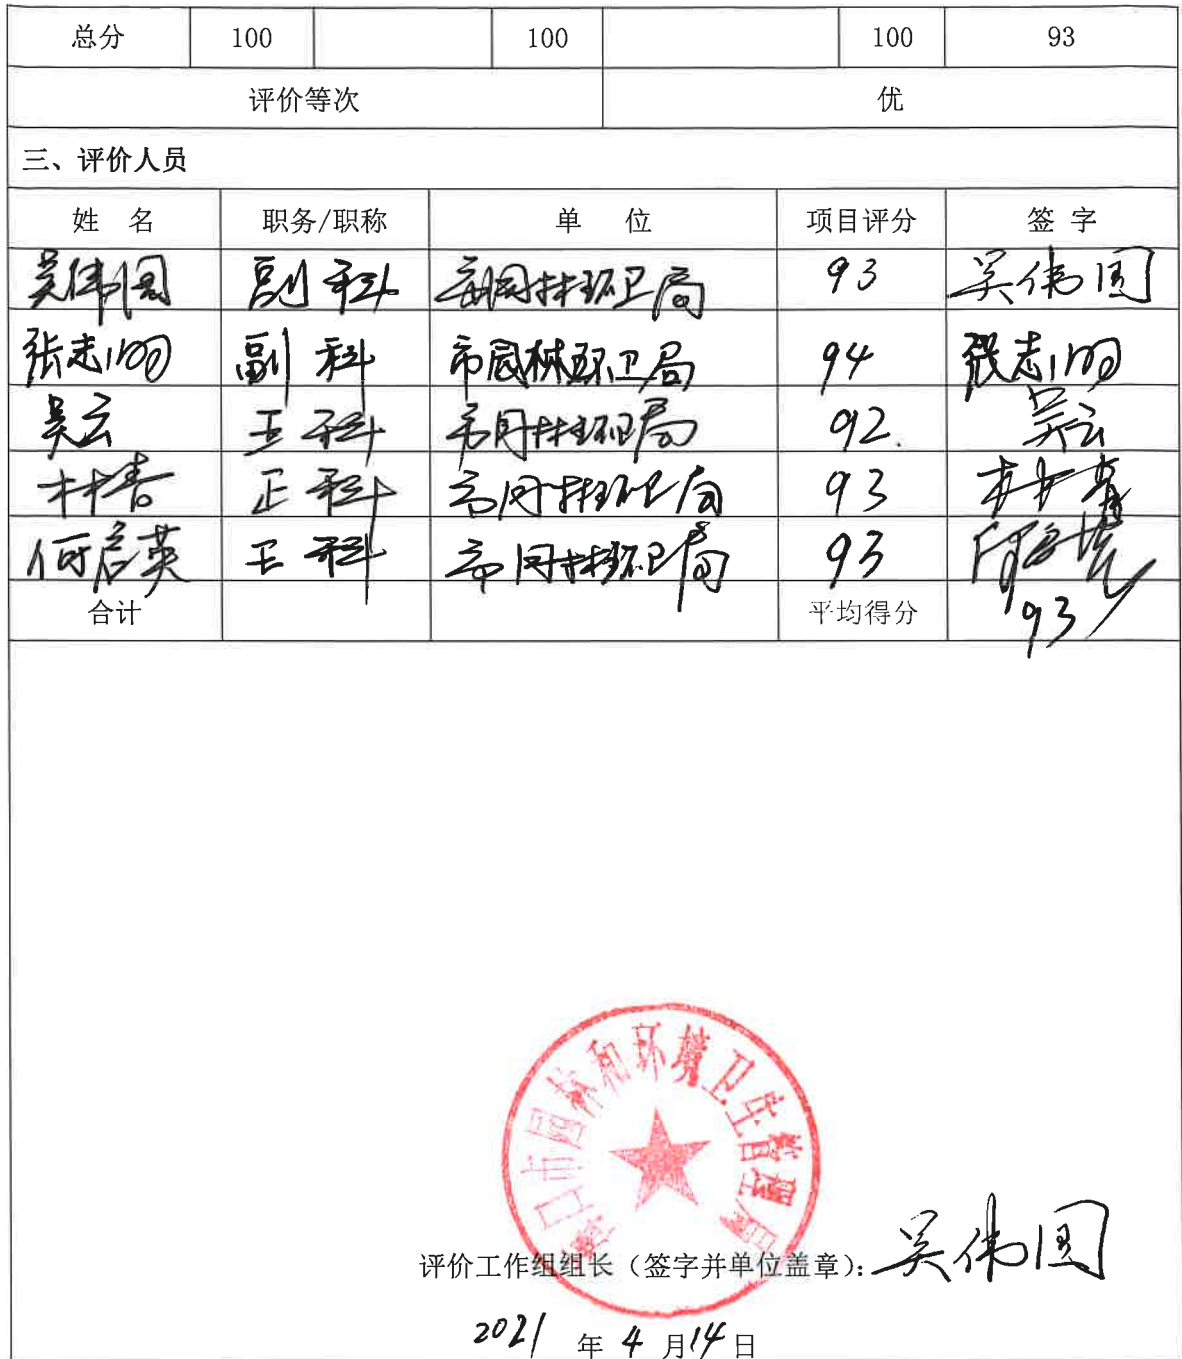 总分 100 100 100 93
评价等次 优
三、评价人员
姓 名 职务/职称 单 位 项目评分 签 字
吴伟国 副科 市园林环卫局 93 吴伟国
张志明 副科 市园林环卫局 94 张志明
吴云 正科 市园林环卫局 92. 吴云
林春 正科 市园林环卫局 93 林春
何启英 正科 市园林环卫局 93 何启英
合计 平均得分 93
海口市园林和环境卫生管理局
评价工作组组长（签字并单位盖章）：吴伟国
2021 年 4 月 14 日